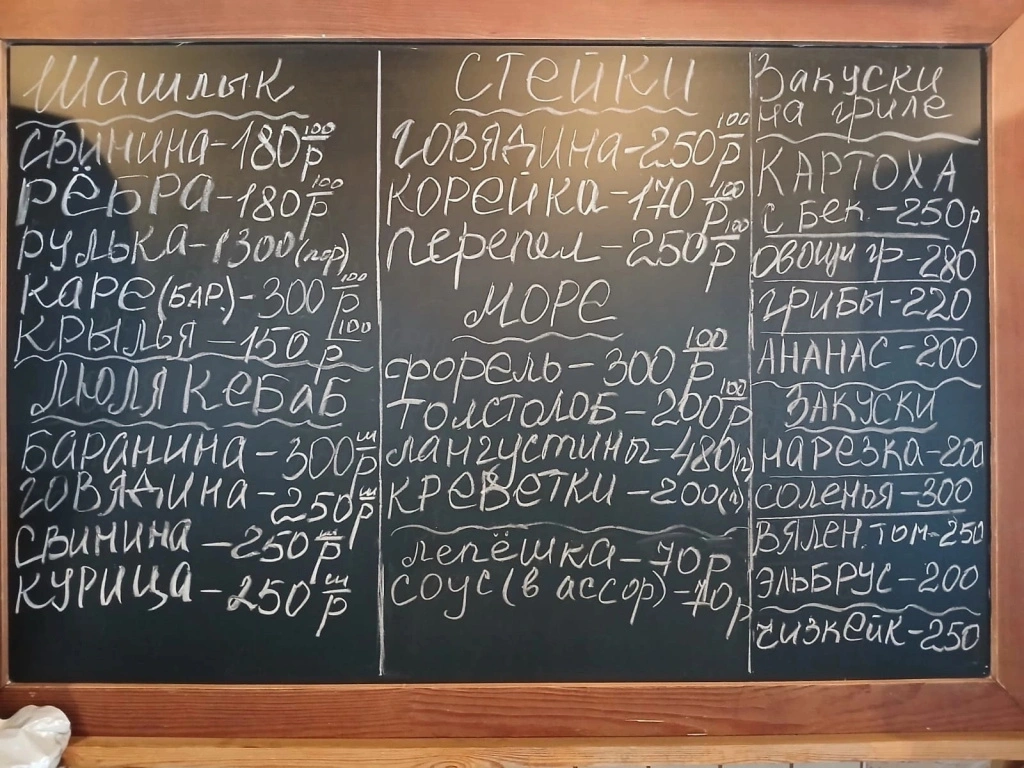 Шашлык
свинина-180 100/р
РЁБРА-180 100/р
рулька-1300(пор)
каре(БАР.)-300 100/р
крылья-150 100/р
Люля кебаб
баранина-300 ш/р
говядина-250 ш/р
свинина-250 ш/р
курица-250 ш/р
СТЕЙКИ
говядина-250 100/р
корейка-170 100/р
перепел-250 100/р
МОРЕ
форель-300 100/р
толстолоб-200 100/р
лангустины-480(п)
креветки-200(п)
лепёшка-70р
соус(в ассор)-70р
Закуски
на гриле
КАРТОХА
с бек.-250р
овощи гр-280
грибы-220
АНАНАС-200
ЗАКУСКИ
нарезка-200
соленья-300
вялен.том-250
эльбрус-200
чизкейк-250